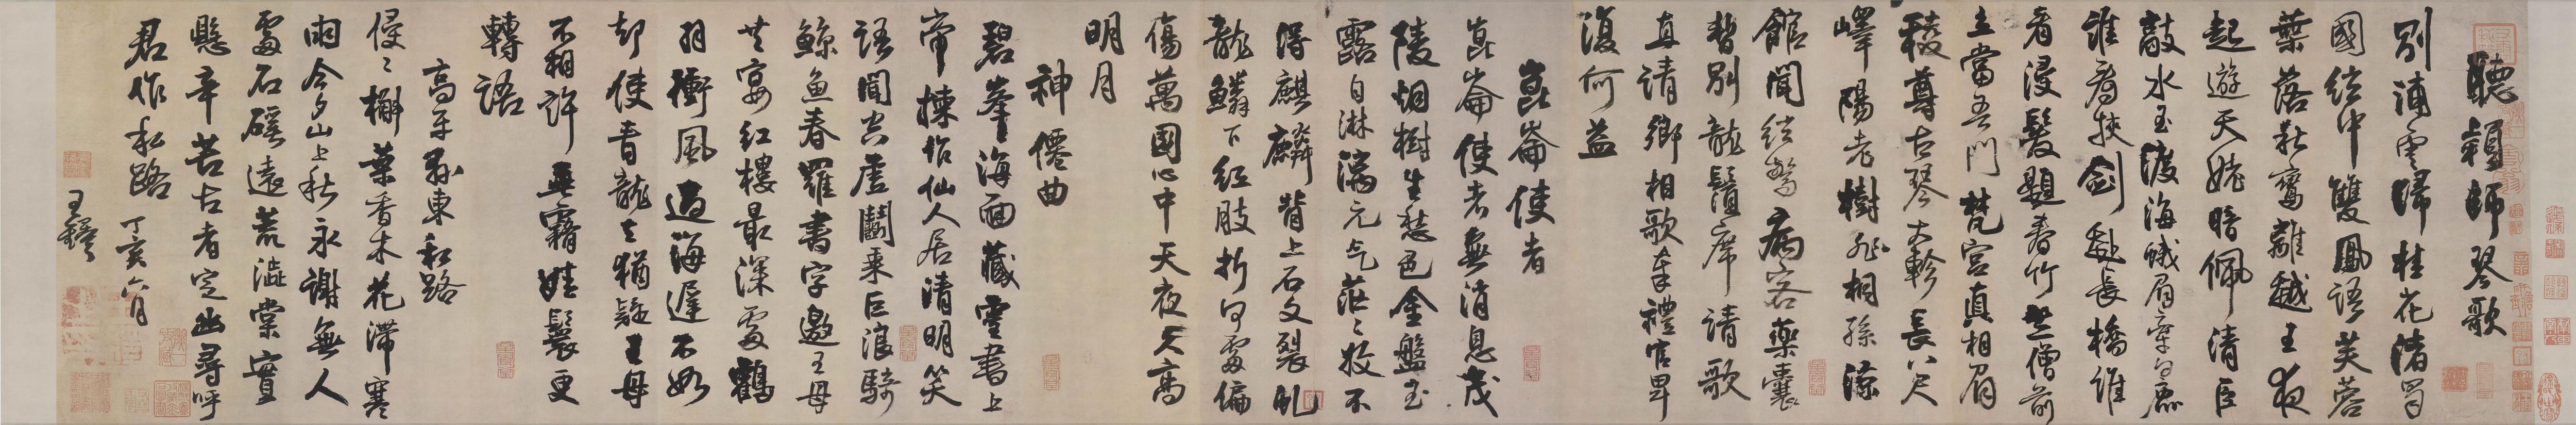 聽穎師琴歌
別浦雲歸桂花渚蜀
國絃中雙鳳語芙蓉
葉落秋鸞離越王夜
起遊天姥暗佩清臣
敲水玉渡海蛾眉牽白鹿
誰看挾劍赴長橋誰
看浸髮題春竹竺僧前
立當吾門梵宮真相眉
稜尊古琴大軫長八尺
嶧陽老樹非桐孫涼
館聞絃驚病客藥囊
暫別龍鬚席請歌
直請卿相歌奉禮官卑
復何益
崑崙使者
崑崙使者無消息茂
陵烟樹生愁色金盤玉
露自淋漓元气茫〻收不
得麒麟背上石文裂虬
龍鱗下紅肢折何處偏
傷萬國心中天夜久高
明月
神僊曲
碧峯海面藏靈書上
帝揀作仙人居清明笑
語聞空虛鬭乘巨浪騎
鯨魚春羅書字邀王母
共宴紅樓最深處鶴
羽衝風過海遲不如
却使青龍去猶疑王母
不相許垂霧娃鬟更
轉語
高平縣東私路
侵〻槲葉香木花滯寒
雨今夕山上秋永謝無人
處石磎遠荒澁棠實
懸辛苦古者定幽尋呼
君作私路
丁亥六月
王鐸